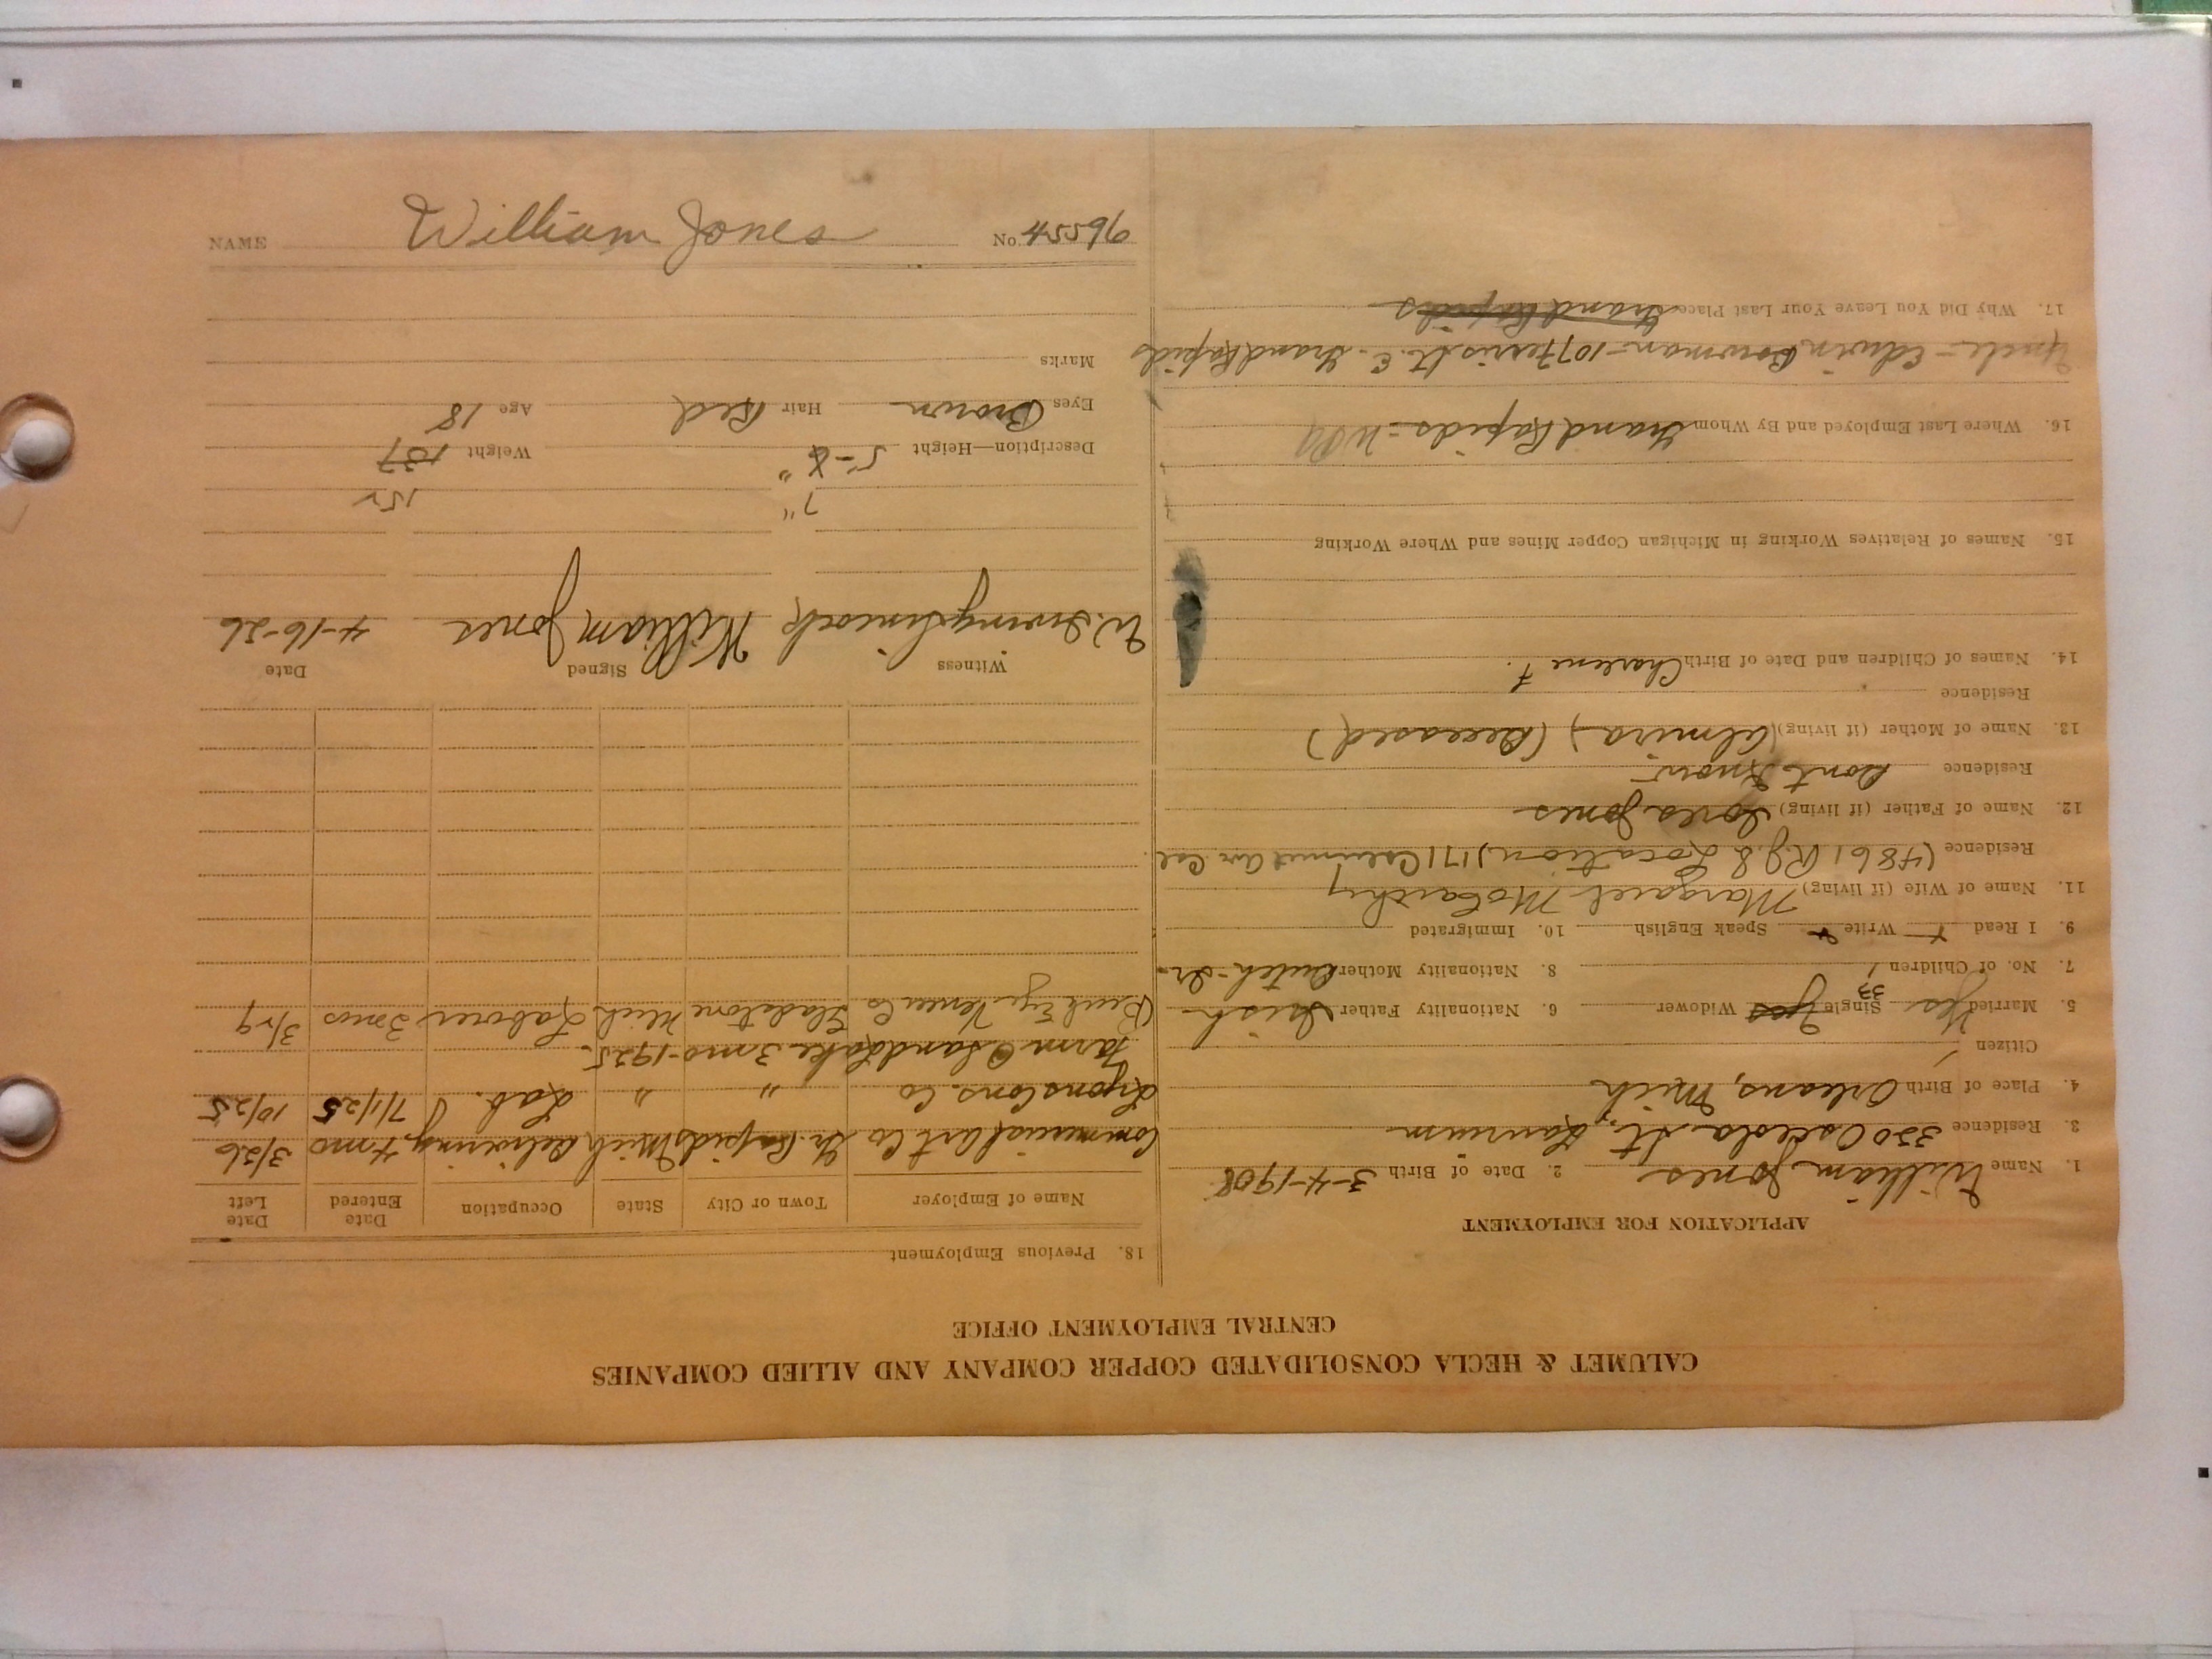 CALUMET & HECLA CONSOLIDATED COPPER COMPANY AND ALLIED COMPANIES
CENTRAL EMPLOYMENT OFFICE
APPLICATION FOR EMPLOYMENT
1. Name William Jones 2. Date of Birth 3-4-1908
3. Residence 350 Osceola St., Laurium
4. Place of Birth Orleans, Mich
Citizen
5. Married Yes Single Yes Widower 6. Nationality Father Irish
33
7. No. of Children 1 8. Nationality Mother Dutch-Ir-
9. I Read + Write + Speak English 10. Immigrated
11. Name of Wife (if living) Margaret McCarthy
Residence (4861 R.J.& Location) 171 Calumet Av Cal
12. Name of Father (if living) Jones
Residence Dont Know
13. Name of Mother (if living) (Almira) (Deceased)
Residence
14. Names of Children and Date of Birth Charlene F.
15. Names of Relatives Working in Michigan Copper Mines and Where Working
16. Where Last Employed and By Whom Grand Rapids =
Uncle - Edwin Bowman - 107 Ferris St. E. Grand Rapids
17. Why Did You Leave Your Last Place Grand Rapids
18. Previous Employment
Name of Employer Town or City State Occupation Date Entered Date Left
Commercial Art Co Gr. Rapids Mich Delivering 4 mo 3/26
Lyons Cons. Co " " Lab. 7/1/25 10/25
Farm @ Sand Lake 3 mo - 1925.
(Buck Eye Veneer Co Gladstone Mich Laborer 3 mos 3/29
Witness Signed Date
W. Irving William Jones 4-16-26
7" 152
Description—Height 5-8" Weight 137
Eyes Brown Hair Red Age 18
Marks
NAME William Jones No. 45596